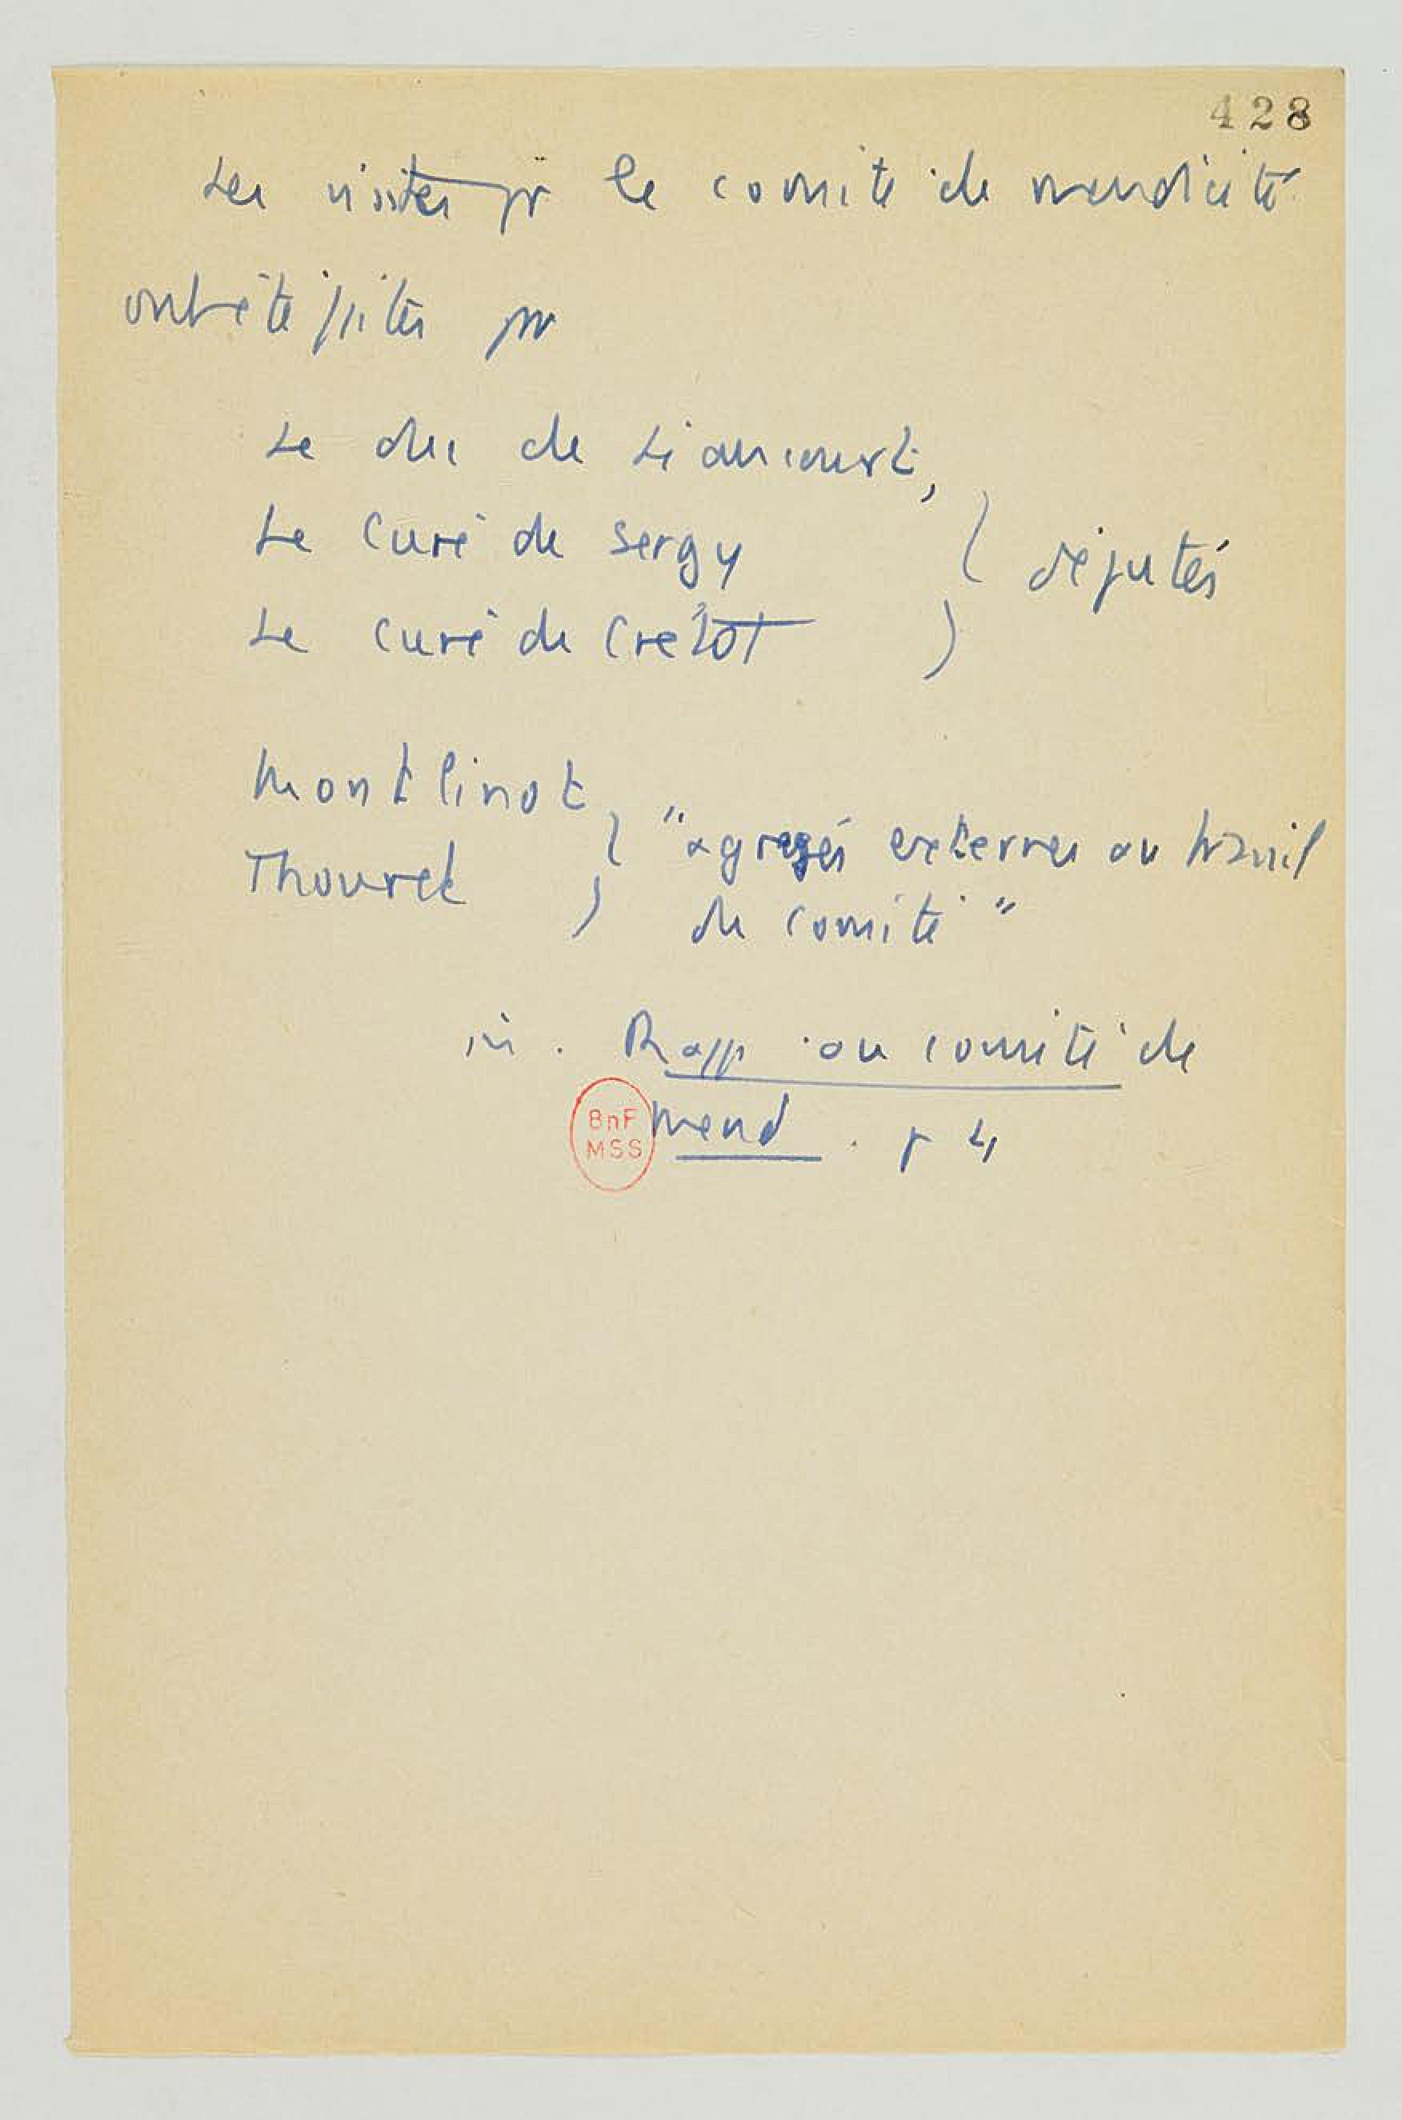 428
Les visites pr le comité de mendicité
ont été faites par
Le duc de Liancourt,
Le curé de Sergy
} députés
Le curé de Crétot
Montlinot
Thouret
} "agrégés externes au travail
du comité"
in. Rapp au comité de
mend. p 4
BnF
MSS